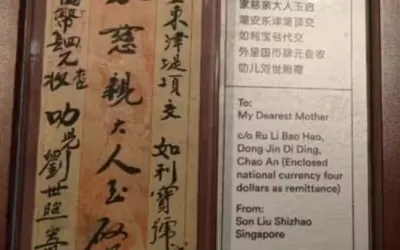 東津堤頂交 如利寶號
慈親大人玉啟
國幣四元 查收 叻兒劉世照寄
家慈亲大人玉启
潮安东津堤顶交
如利宝号代交
外呈国币肆元查收
叻儿刘世照寄
To:
My Dearest Mother
c/o Ru Li Bao Hao,
Dong Jin Di Ding,
Chao An (Enclosed
national currency four
dollars as remittance)
From:
Son Liu Shizhao
Singapore